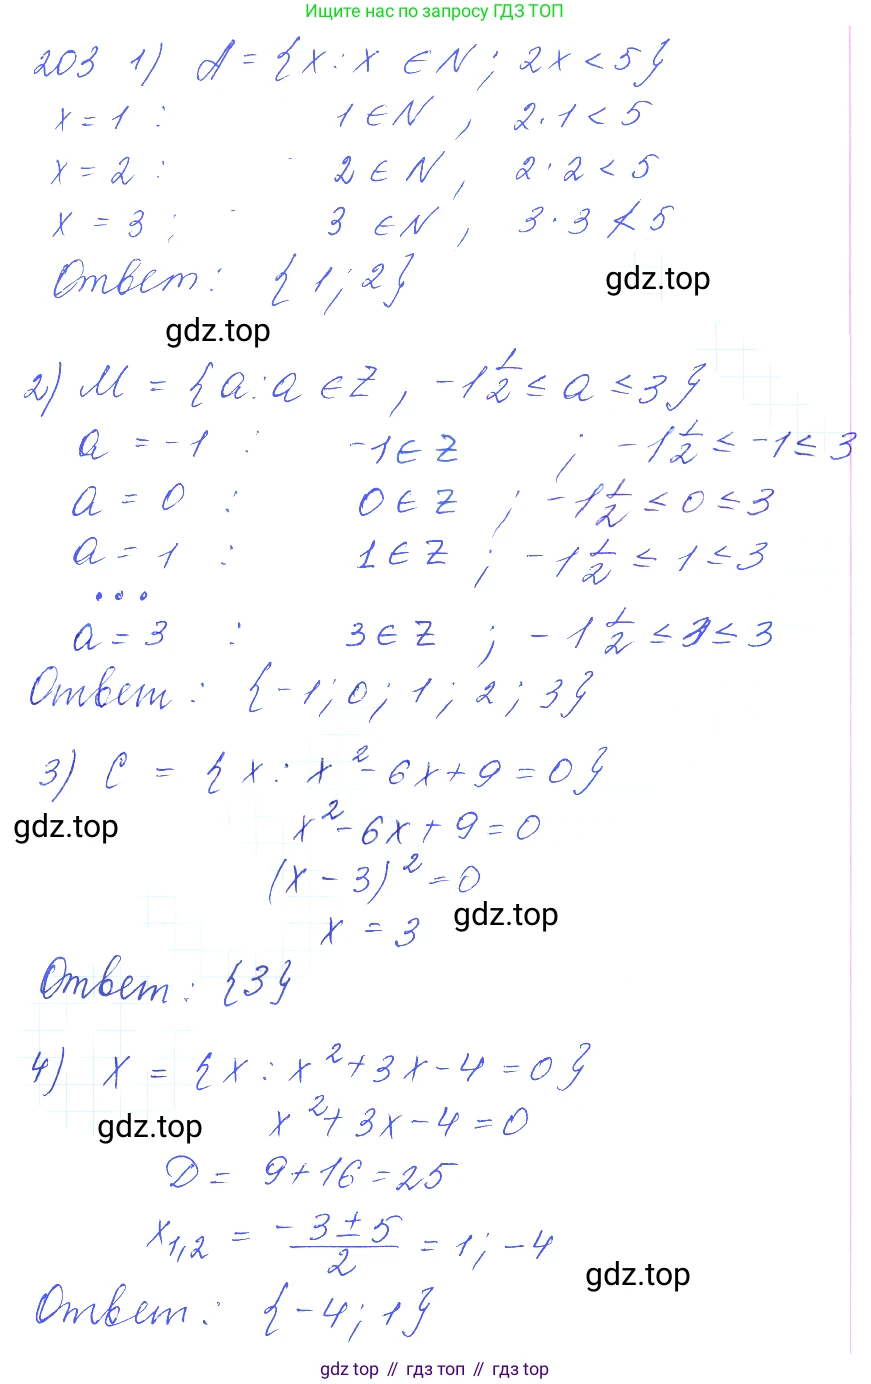 Ищите нас по запросу ГДЗ ТОП
203 1) A = {x : x ∈ N ; 2x < 5}
x = 1 : 1 ∈ N , 2·1 < 5
x = 2 : 2 ∈ N , 2·2 < 5
x = 3 ; 3 ∈ N , 3·3 ≮ 5
Ответ: {1; 2}
gdz.top
gdz.top
2) M = {a : a ∈ Z , -1 1/2 ≤ a ≤ 3}
a = -1 : -1 ∈ Z ; -1 1/2 ≤ -1 ≤ 3
a = 0 : 0 ∈ Z ; -1 1/2 ≤ 0 ≤ 3
a = 1 : 1 ∈ Z ; -1 1/2 ≤ 1 ≤ 3
...
a = 3 : 3 ∈ Z ; -1 1/2 ≤ 3 ≤ 3
Ответ: {-1; 0; 1; 2; 3}
3) C = {x : x² - 6x + 9 = 0}
gdz.top x² - 6x + 9 = 0
(x - 3)² = 0
x = 3 gdz.top
Ответ: {3}
4) X = {x : x² + 3x - 4 = 0}
gdz.top x² + 3x - 4 = 0
D = 9 + 16 = 25
x1,2 = (-3 ± 5)/2 = 1; -4
gdz.top
Ответ: {-4; 1}
gdz top // гдз топ // gdz.top